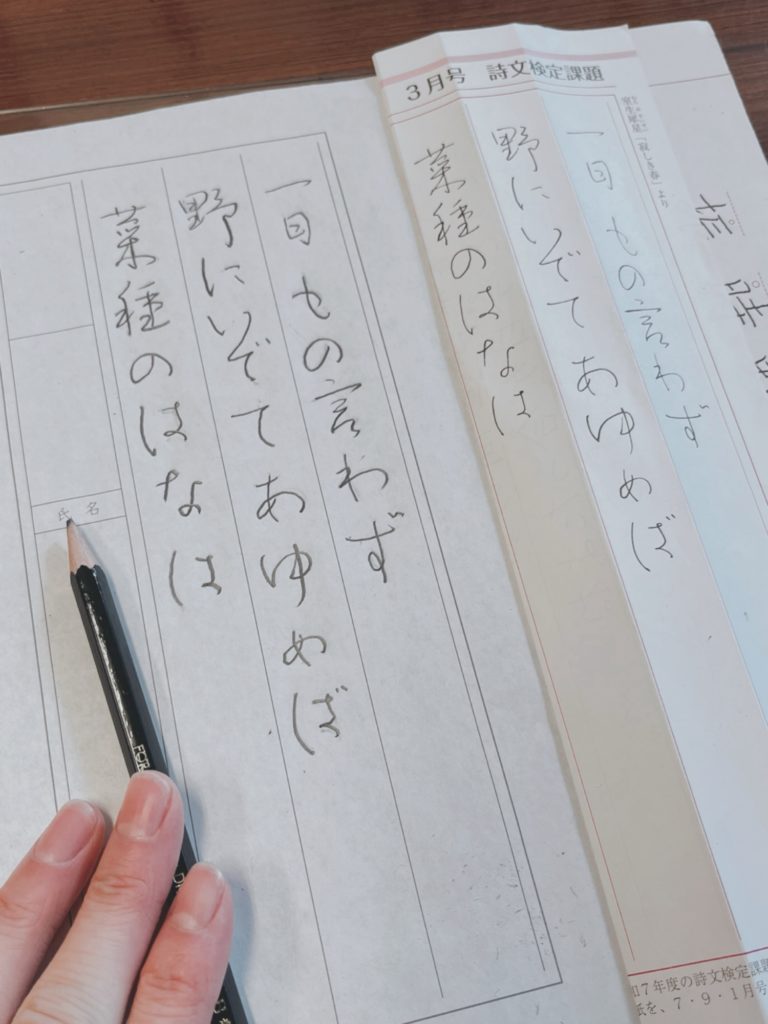 一日もの言わず
野にいでてあゆめば
菜種のはなは
氏名
3月号 詩文検定課題
室生犀星「寂しき春」より
一日もの言わず
野にいでてあゆめば
菜種のはなは
17年度の詩文検定課題
紙を、7・9・1月号